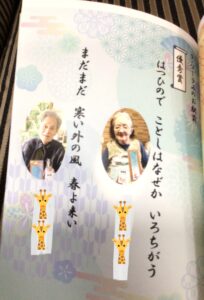 優秀賞
はつひので ことしはなぜか いろちがう
まだまだ 寒い外の風 春よ来い